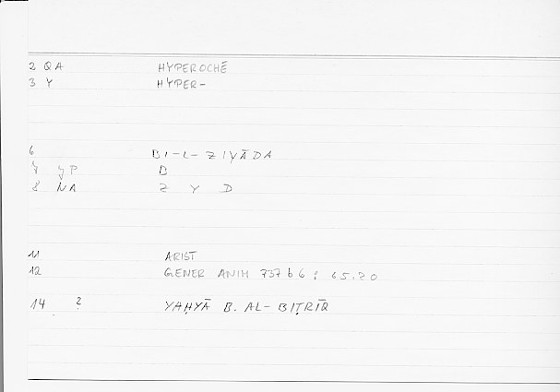 2 QA HYPEROCHĒ
3 Y HYPER-
6 BI-L-ZIYĀDA
7 YP B
8 NA Z Y D
11 ARIST
12 GENER ANIM 737b6 ; 65.20
14 ? YAḤYĀ B. AL-BIṬRĪQ